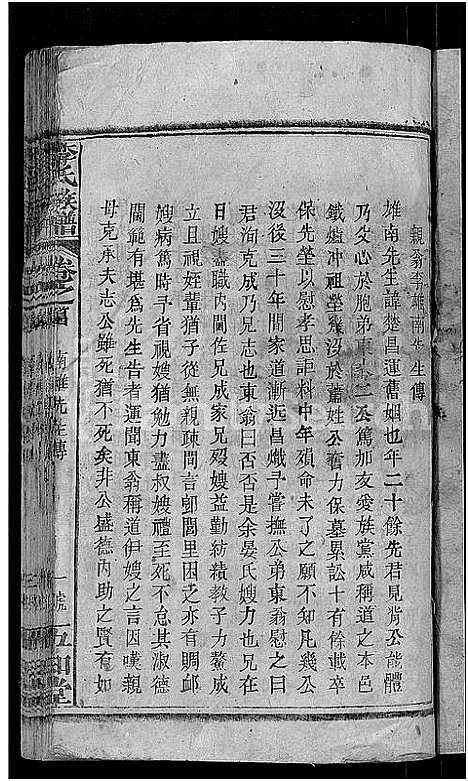 親翁李雄南先生傳
雄南先生諱楚昌運舊姻也年二十餘先君見背公能體
乃父心於胞弟東二公篤加友愛族黨咸稱道之本邑
鐵爐冲祖塋幾沒於蕭姓公奮力保墓累訟十有餘載卒
保先塋以慰孝思詎料中年殞命未了之願不知凡幾公
沒後三十年間家道漸近昌熾予嘗撫公弟東翁慰之曰
君洵克成乃兄志也東翁曰否否是余晏氏嫂力也兄在
日嫂盡職內閫佐兄成家兄歿嫂益勤紡績教子力鰲成
立且視姪輩猶子從無疎間言卽閭里困乏亦有賙邮
嫂病篤時予省視嫂猶勉力盡叔嫂禮至死不怠其淑德
閫範有堪為先生告者運聞東翁稱道伊嫂之言因嘆親
母克承夫志公雖死猶不死矣非公盛德內助之賢有如
李氏族譜
卷之
南雄先生傳
一號